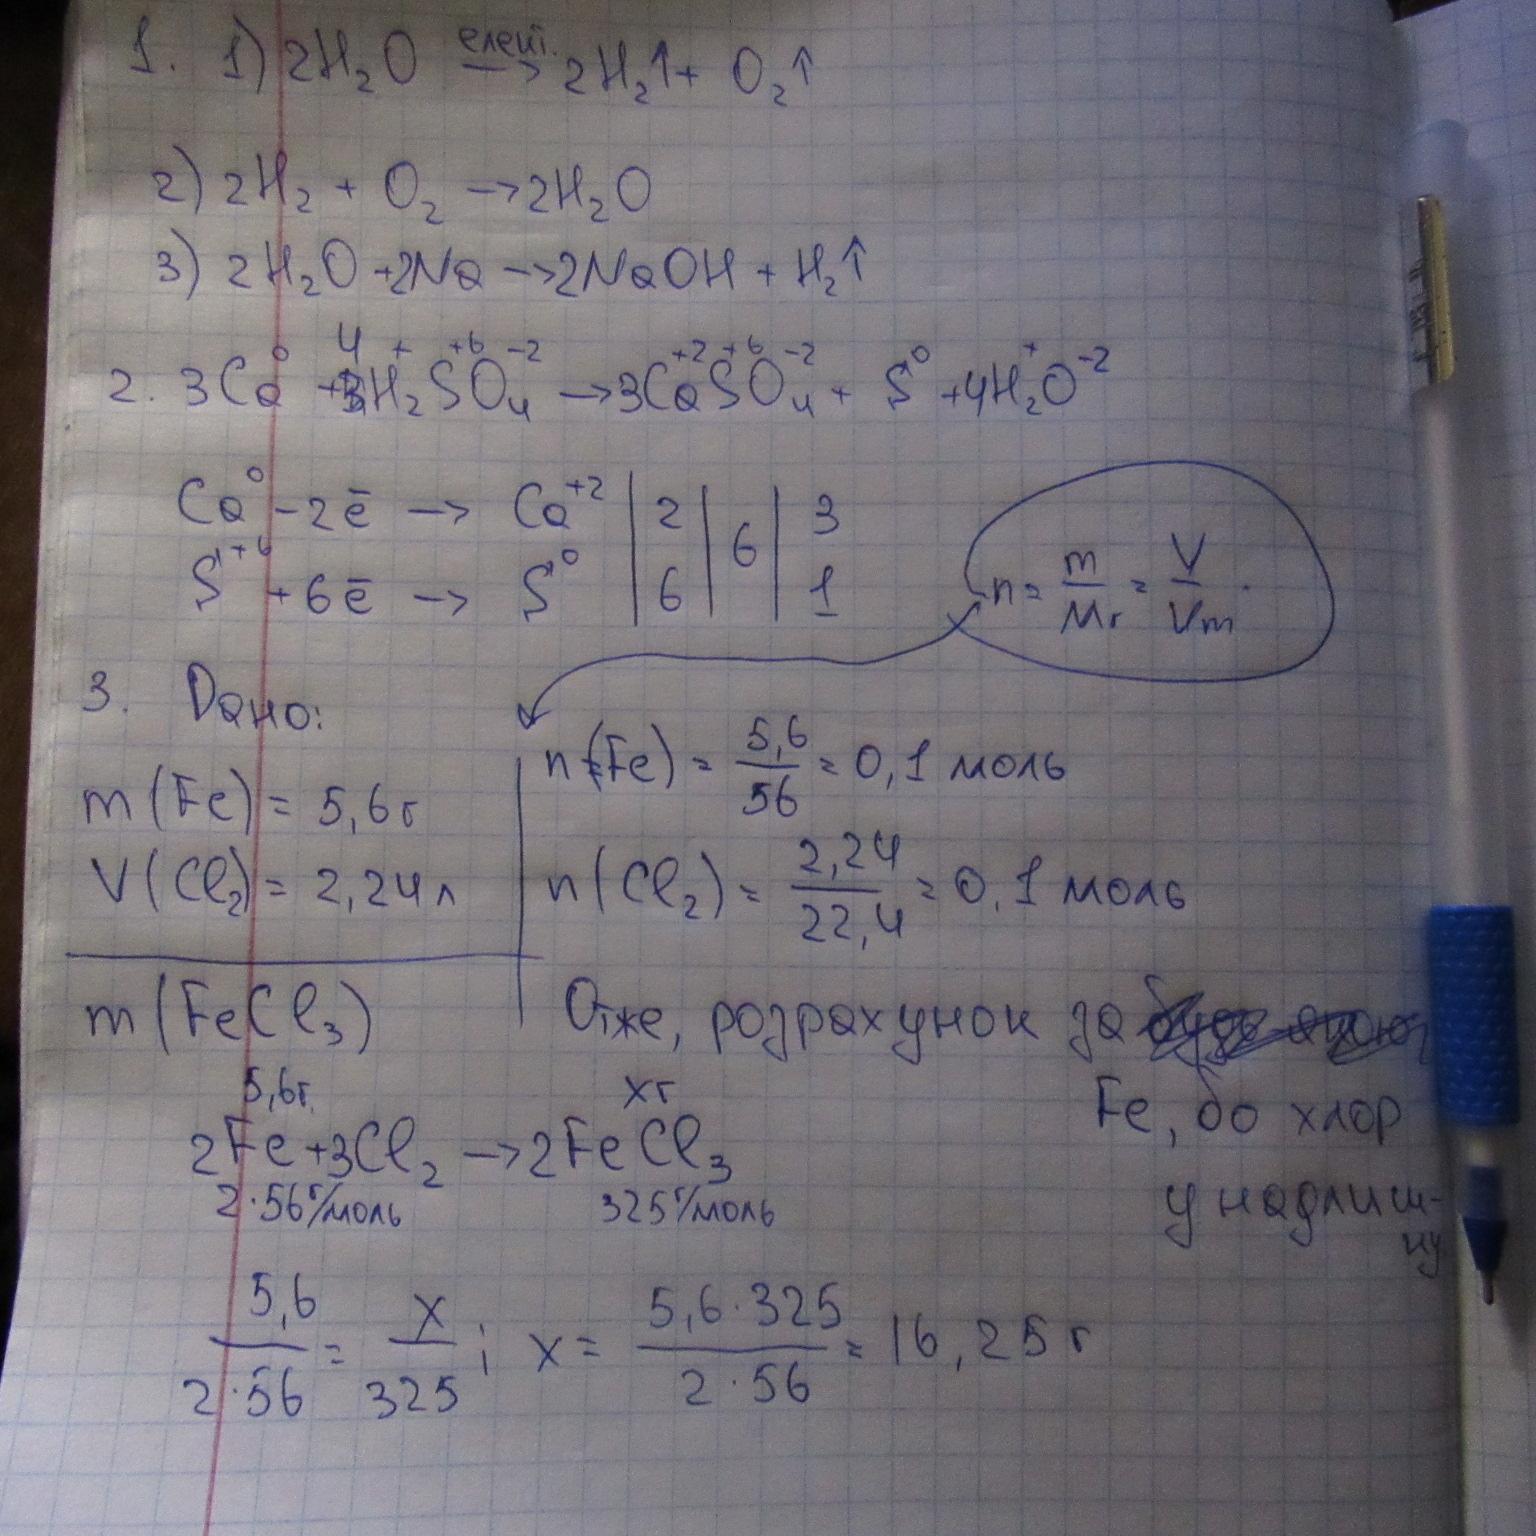 1. 1) 2H₂O елект. → 2H₂↑ + O₂↑
2) 2H₂ + O₂ → 2H₂O
3) 2H₂O + 2Na → 2NaOH + H₂↑
2. 3Ca⁰ + 4H₂⁺S⁺⁶O₄⁻² → 3Ca⁺²S⁺⁶O₄⁻² + S⁰ + 4H₂⁺O⁻²
Ca⁰ - 2ē → Ca⁺² | 2 | 6 | 3
S⁺⁶ + 6ē → S⁰ | 6 | | 1
n = m/Mr = V/Vm.
3. Дано:
m(Fe) = 5,6г
V(Cl₂) = 2,24л
m(FeCl₃)
n(Fe) = 5,6/56 = 0,1 моль
n(Cl₂) = 2,24/22,4 = 0,1 моль
Отже, розрахунок за
Fe, бо хлор
у надлиш-
ку
5,6г xг
2Fe + 3Cl₂ → 2FeCl₃
2·56г/моль 325г/моль
5,6/2·56 = x/325; x = 5,6·325/2·56 = 16,25г